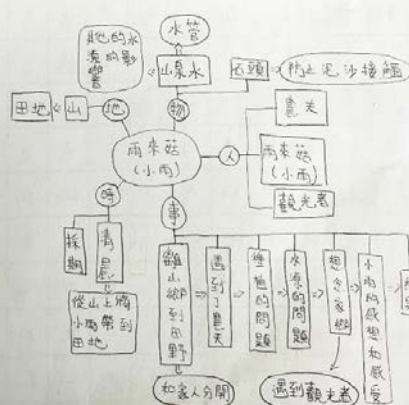 水管
其他的水
源的影
響
山泉水
石頭
防止泥沙接觸
田地
山
地
物
農夫
雨來菇
(小雨)
人
雨來菇
(小雨)
觀光者
時
事
採期
清晨
從山上將
小雨帶到
田地
離山鄉到田野
遇到了農夫
種植的問題
水源的問題
想念家鄉
小雨的感想和感受
和家人分開
遇到觀光者